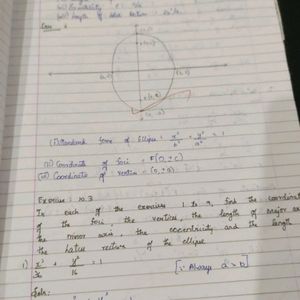 (iii) Eccentricity e = c/a
(iv) Length of latus rectum = 2b²/a
Case
(i) Standard form of Ellipse: x²/b² + y²/a² = 1
(ii) Coordinate of foci = F(0, ± c)
(iii) Coordinate of vertice = (0, ± a)
Exercise : 10.3
In each of the exercises 1 to 9, find the coordinates
of the foci, the vertices, the length of major axis
the minor axis, the eccentricity and the length
the latus rectum of the ellipse
1) x²/36 + y²/16 = 1 [∵ Always a > b]
Soln: